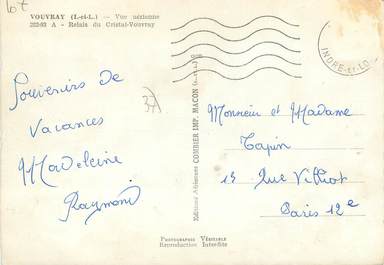 67
VOUVRAY (I.-et-L.) — Vue aérienne
202-93 A - Relais du Cristal-Vouvray
INDRE-ET-LO
Souvenirs de
vacances
Madeleine
Raymond
37
Editions Aériennes COMBIER IMP. MACON (S.-et-L.)
Monsieur et Madame
Tapin
15 Rue Villiot
Paris 12e
PHOTOGRAPHIE VÉRITABLE
Reproduction Interdite